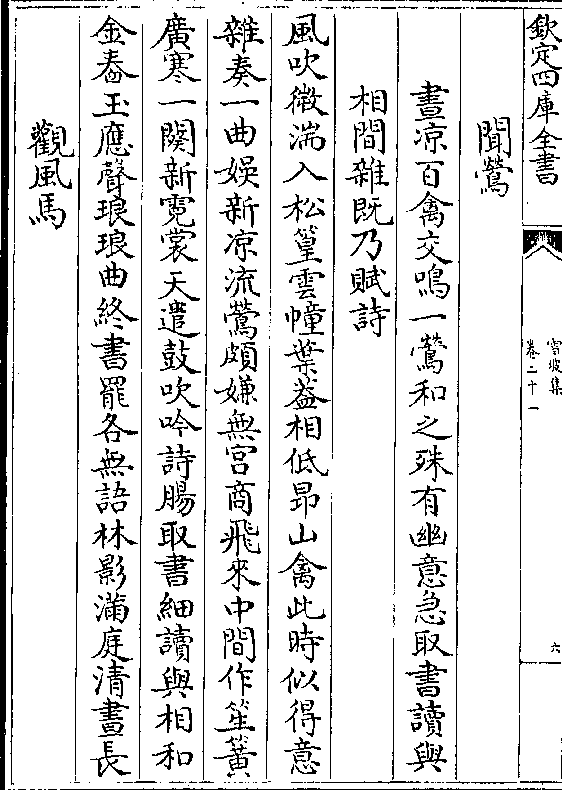 欽定四庫全書
雪坡集
卷二十一
六
聞鶯
晝凉百禽交鳴一鶯和之殊有幽意急取書讀與
相間雜既乃賦詩
風吹微湍入松篁雲幢葉葢相低昻山禽此時似得意
雜奏一曲娯新凉流鶯頗嫌無宫商飛來中間作笙簧
廣寒一闋新霓裳天遣鼓吹吟詩腸取書細讀與相和
金舂玉應聲琅琅曲終書罷各無語林影滿庭清晝長
觀風馬